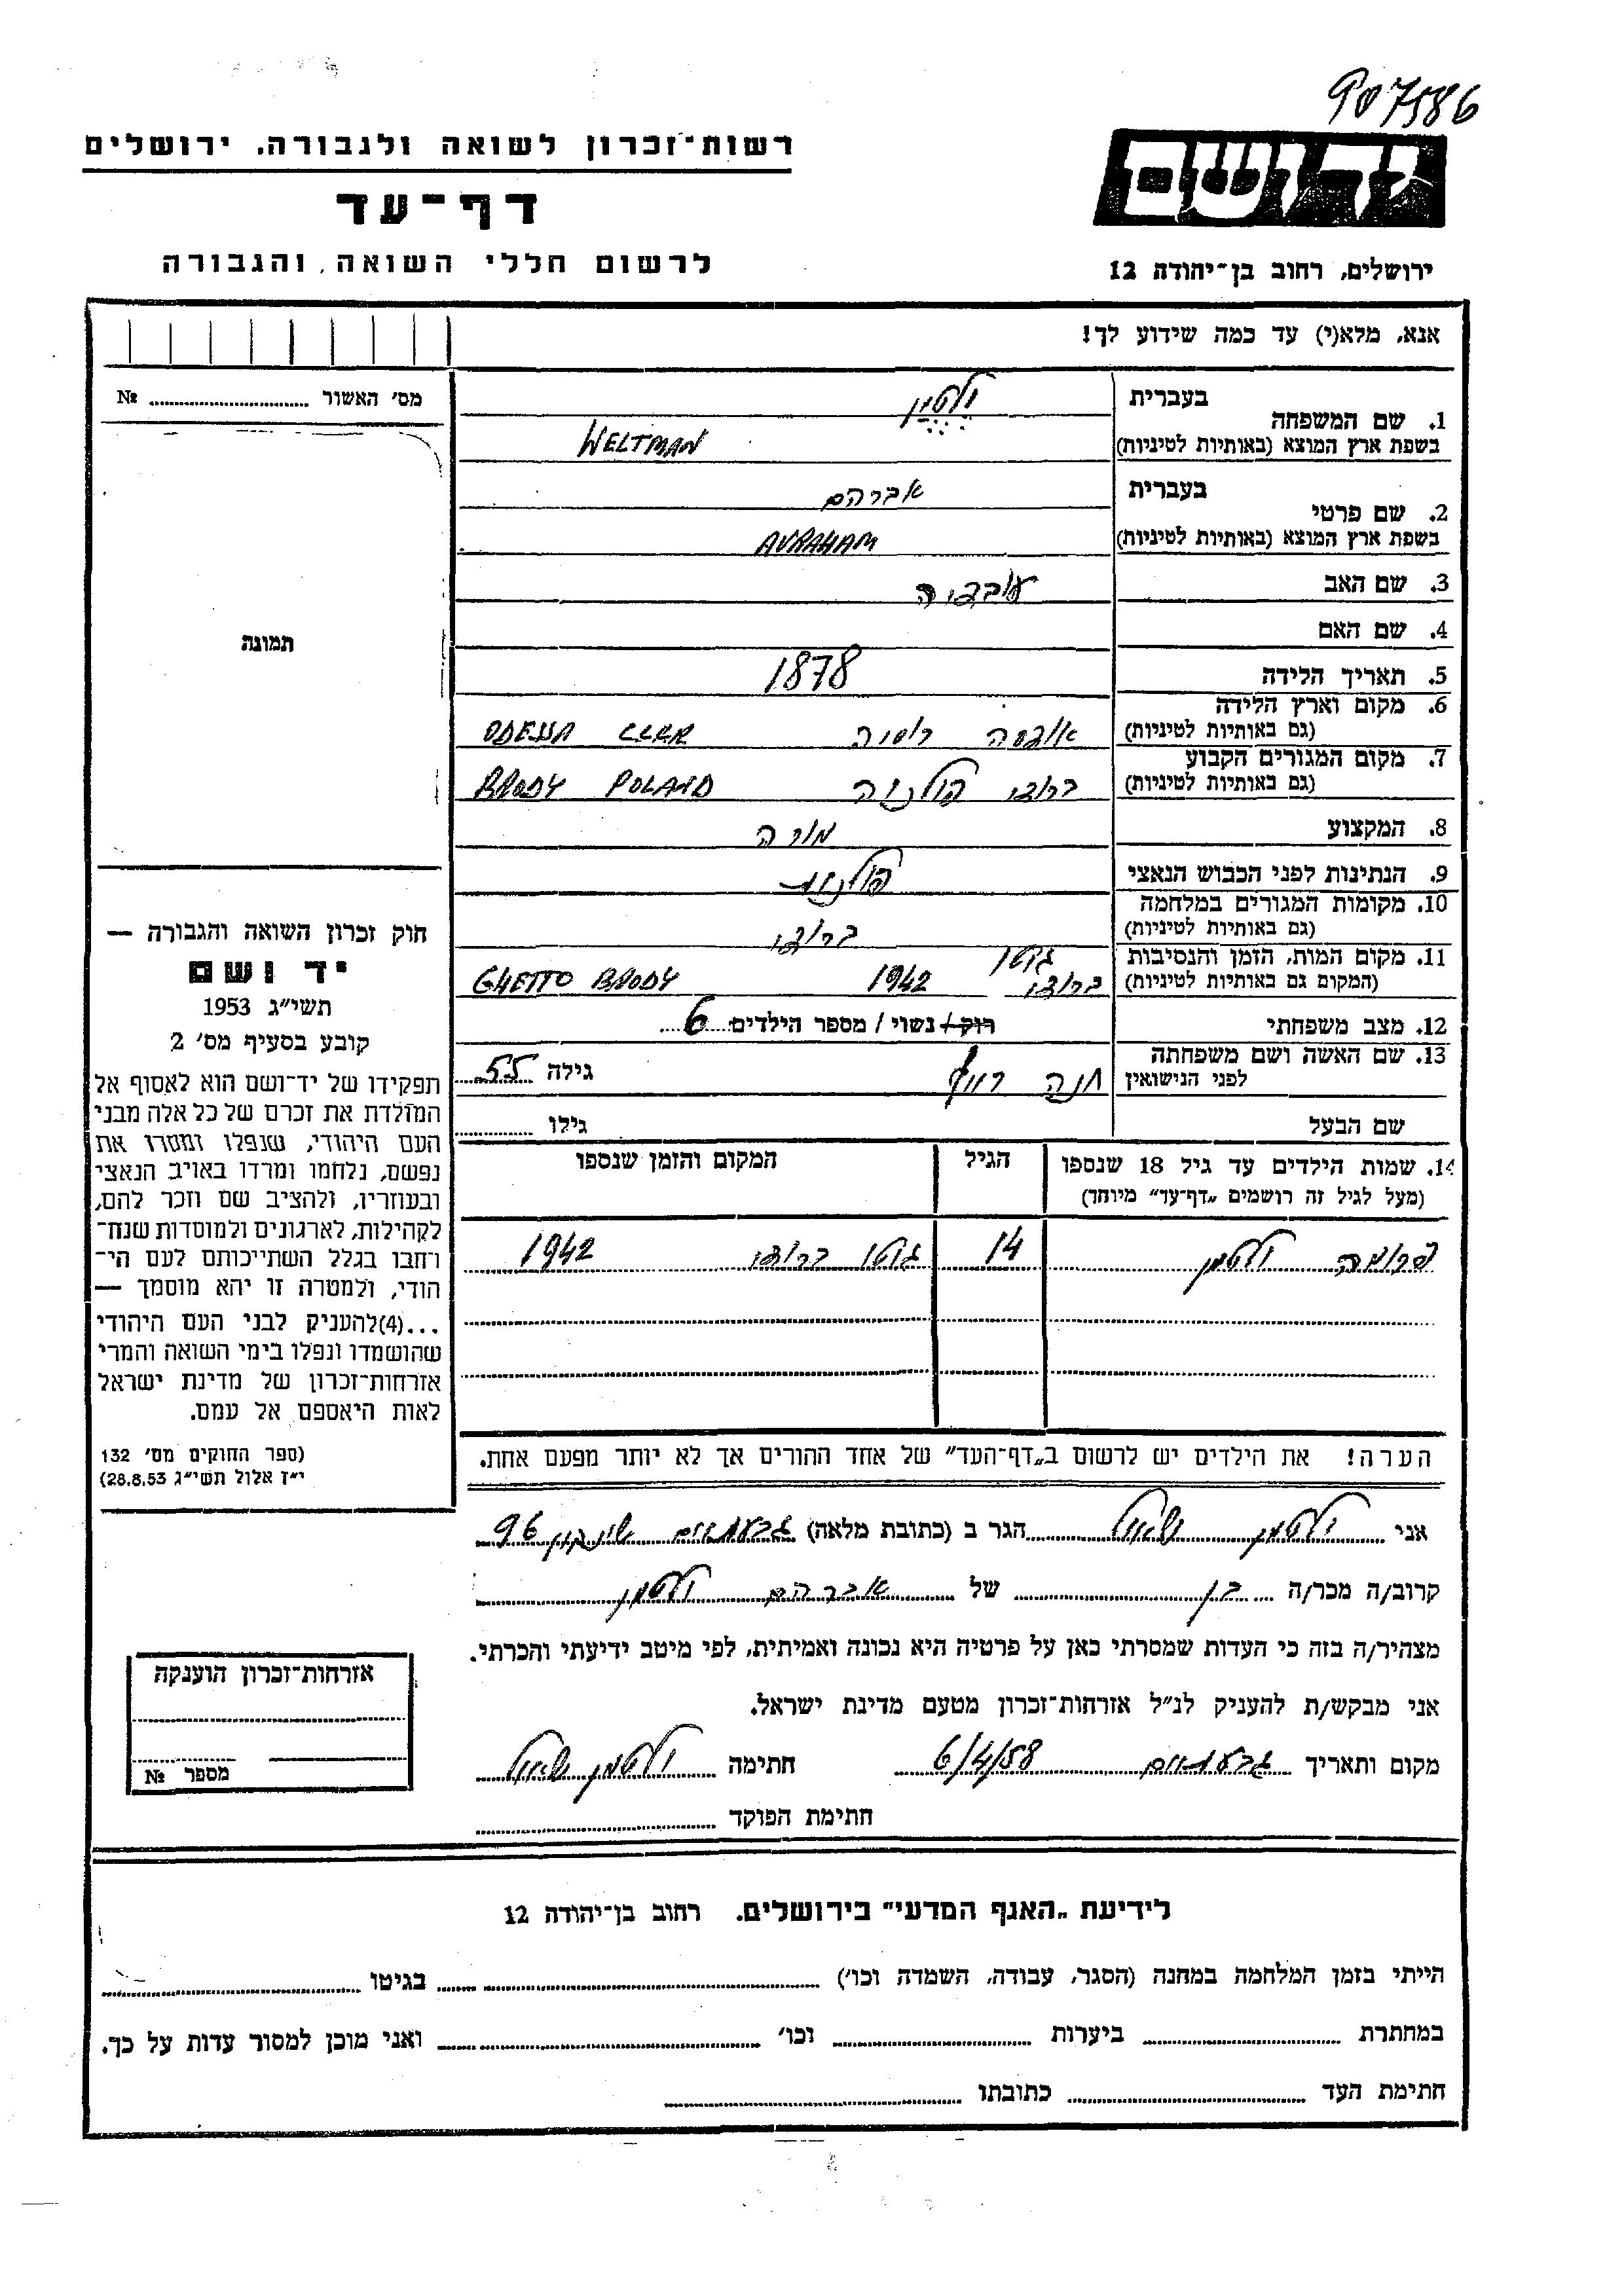 907586
רשות־זכרון לשואה ולגבורה, ירושלים
יד ושם
דף־עד
לרשום חללי השואה והגבורה
ירושלים, רחוב בן־יהודה 12
אנא, מלא(י) עד כמה שידוע לך!
מס׳ האשור № 
בעברית
1. שם המשפחה
בשפת ארץ המוצא (באותיות לטיניות) WELTMAN
בעברית אברהם
2. שם פרטי
בשפת ארץ המוצא (באותיות לטיניות) AVRAHAM
3. שם האב עובדיה
4. שם האם
5. תאריך הלידה 1878
6. מקום וארץ הלידה
(גם באותיות לטיניות) אודסה רוסיה ODESSA
7. מקום המגורים הקבוע
(גם באותיות לטיניות) ברודי פולניה BRODY POLAND
8. המקצוע מורה
9. הנתינות לפני הכבוש הנאצי פולנית
10. מקומות המגורים במלחמה
(גם באותיות לטיניות) ברודי
11. מקום המות, הזמן והנסיבות גטו
(המקום גם באותיות לטיניות) ברודי 1942 GHETTO BRODY
12. מצב משפחתי רוק / נשוי / מספר הילדים 6
13. שם האשה ושם משפחתה
לפני הנישואין חנה גילה 55
שם הבעל גילו
תמונה
חוק זכרון השואה והגבורה —
יד ושם
תשי״ג 1953
קובע בסעיף מס׳ 2
תפקידו של יד־ושם הוא לאסוף אל
המולדת את זכרם של כל אלה מבני
העם היהודי, שנפלו ומסרו את
נפשם, נלחמו ומרדו באויב הנאצי
ובעוזריו, ולהציב שם וזכר להם,
לקהילות, לארגונים ולמוסדות שנח־
רחבו בגלל השתייכותם לעם הי־
הודי, ולמטרה זו יהא מוסמך —
...(4)להעניק לבני העם היהודי
שהושמדו ונפלו בימי השואה והמרי
אזרחות־זכרון של מדינת ישראל
לאות היאספם אל עמם.
(ספר החוקים מס׳ 132
י״ז אלול תשי״ג 28.8.53)
14. שמות הילדים עד גיל 18 שנספו הגיל המקום והזמן שנספו
(מעל לגיל זה רושמים „דף־עד״ מיוחד)
ולטמן 14 גטו ברודי 1942
הערה! את הילדים יש לרשום ב„דף־העד״ של אחד ההורים אך לא יותר מפעם אחת.
אני ולטמן שאול הגר ב (כתובת מלאה) גבעתיים שינקין 96
קרוב/ה מכר/ה בן של אברהם ולטמן
מצהיר/ה בזה כי העדות שמסרתי כאן על פרטיה היא נכונה ואמיתית, לפי מיטב ידיעתי והכרתי.
אני מבקש/ת להעניק לנ״ל אזרחות־זכרון מטעם מדינת ישראל.
מקום ותאריך גבעתיים 6/4/58 חתימה ולטמן שאול
חתימת הפוקד
אזרחות־זכרון הוענקה
מספר №
לידיעת „האגף המדעי״ בירושלים. רחוב בן־יהודה 12
הייתי בזמן המלחמה במחנה (הסגר, עבודה, השמדה וכו׳) בגיטו
במחתרת ביערות וכו׳ ואני מוכן למסור עדות על כך.
חתימת העד כתובתו